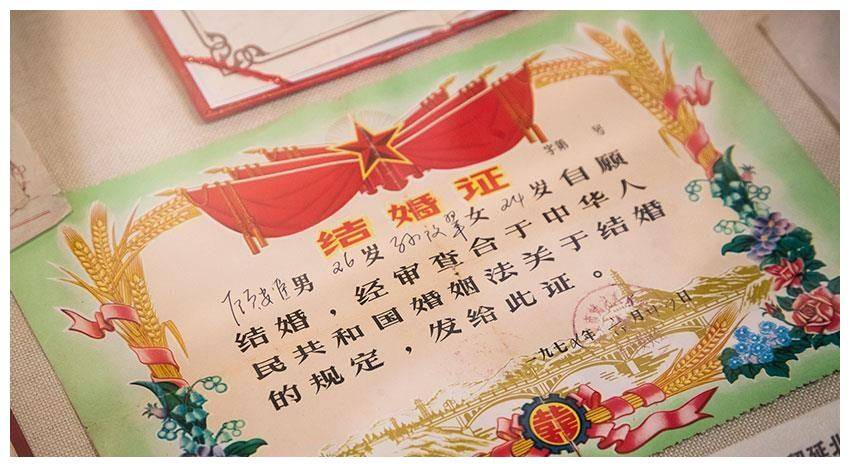 结婚证
字第 号
男 26岁 女 24岁自愿
结婚，经审查合于中华人
民共和国婚姻法关于结婚
的规定，发给此证。
一九七 年 月 日
囍
延北